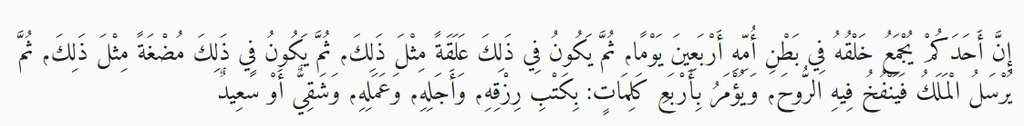 إِنَّ أَحَدَكُمْ يُجْمَعُ خَلْقُهُ فِي بَطْنِ أُمِّهِ أَرْبَعِينَ يَوْمًا، ثُمَّ يَكُونُ فِي ذَلِكَ عَلَقَةً مِثْلَ ذَلِكَ، ثُمَّ يَكُونُ فِي ذَلِكَ مُضْغَةً مِثْلَ ذَلِكَ، ثُمَّ
يُرْسَلُ الْمَلَكُ فَيَنْفُخُ فِيهِ الرُّوحَ، وَيُؤْمَرُ بِأَرْبَعِ كَلِمَاتٍ: بِكَتْبِ رِزْقِهِ، وَأَجَلِهِ، وَعَمَلِهِ، وَشَقِيٌّ أَوْ سَعِيدٌ